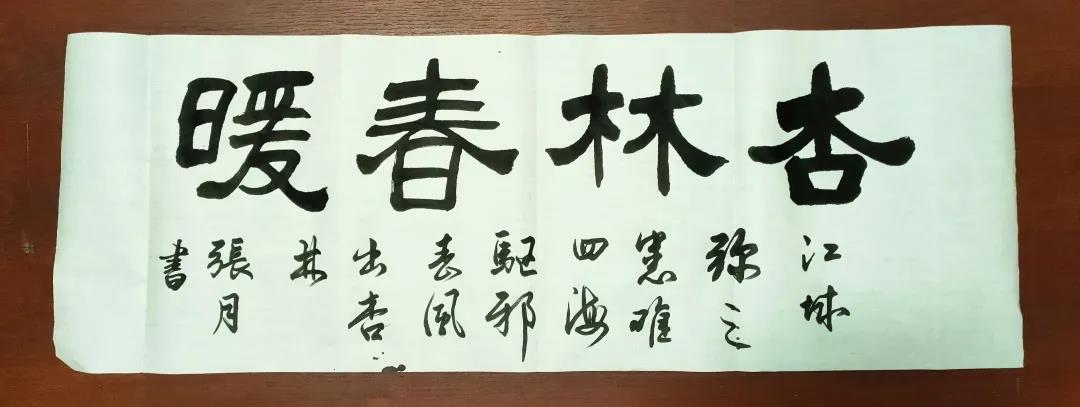 杏林春暖
江城
四海
驅邪
春風
出杏
林
張月
書